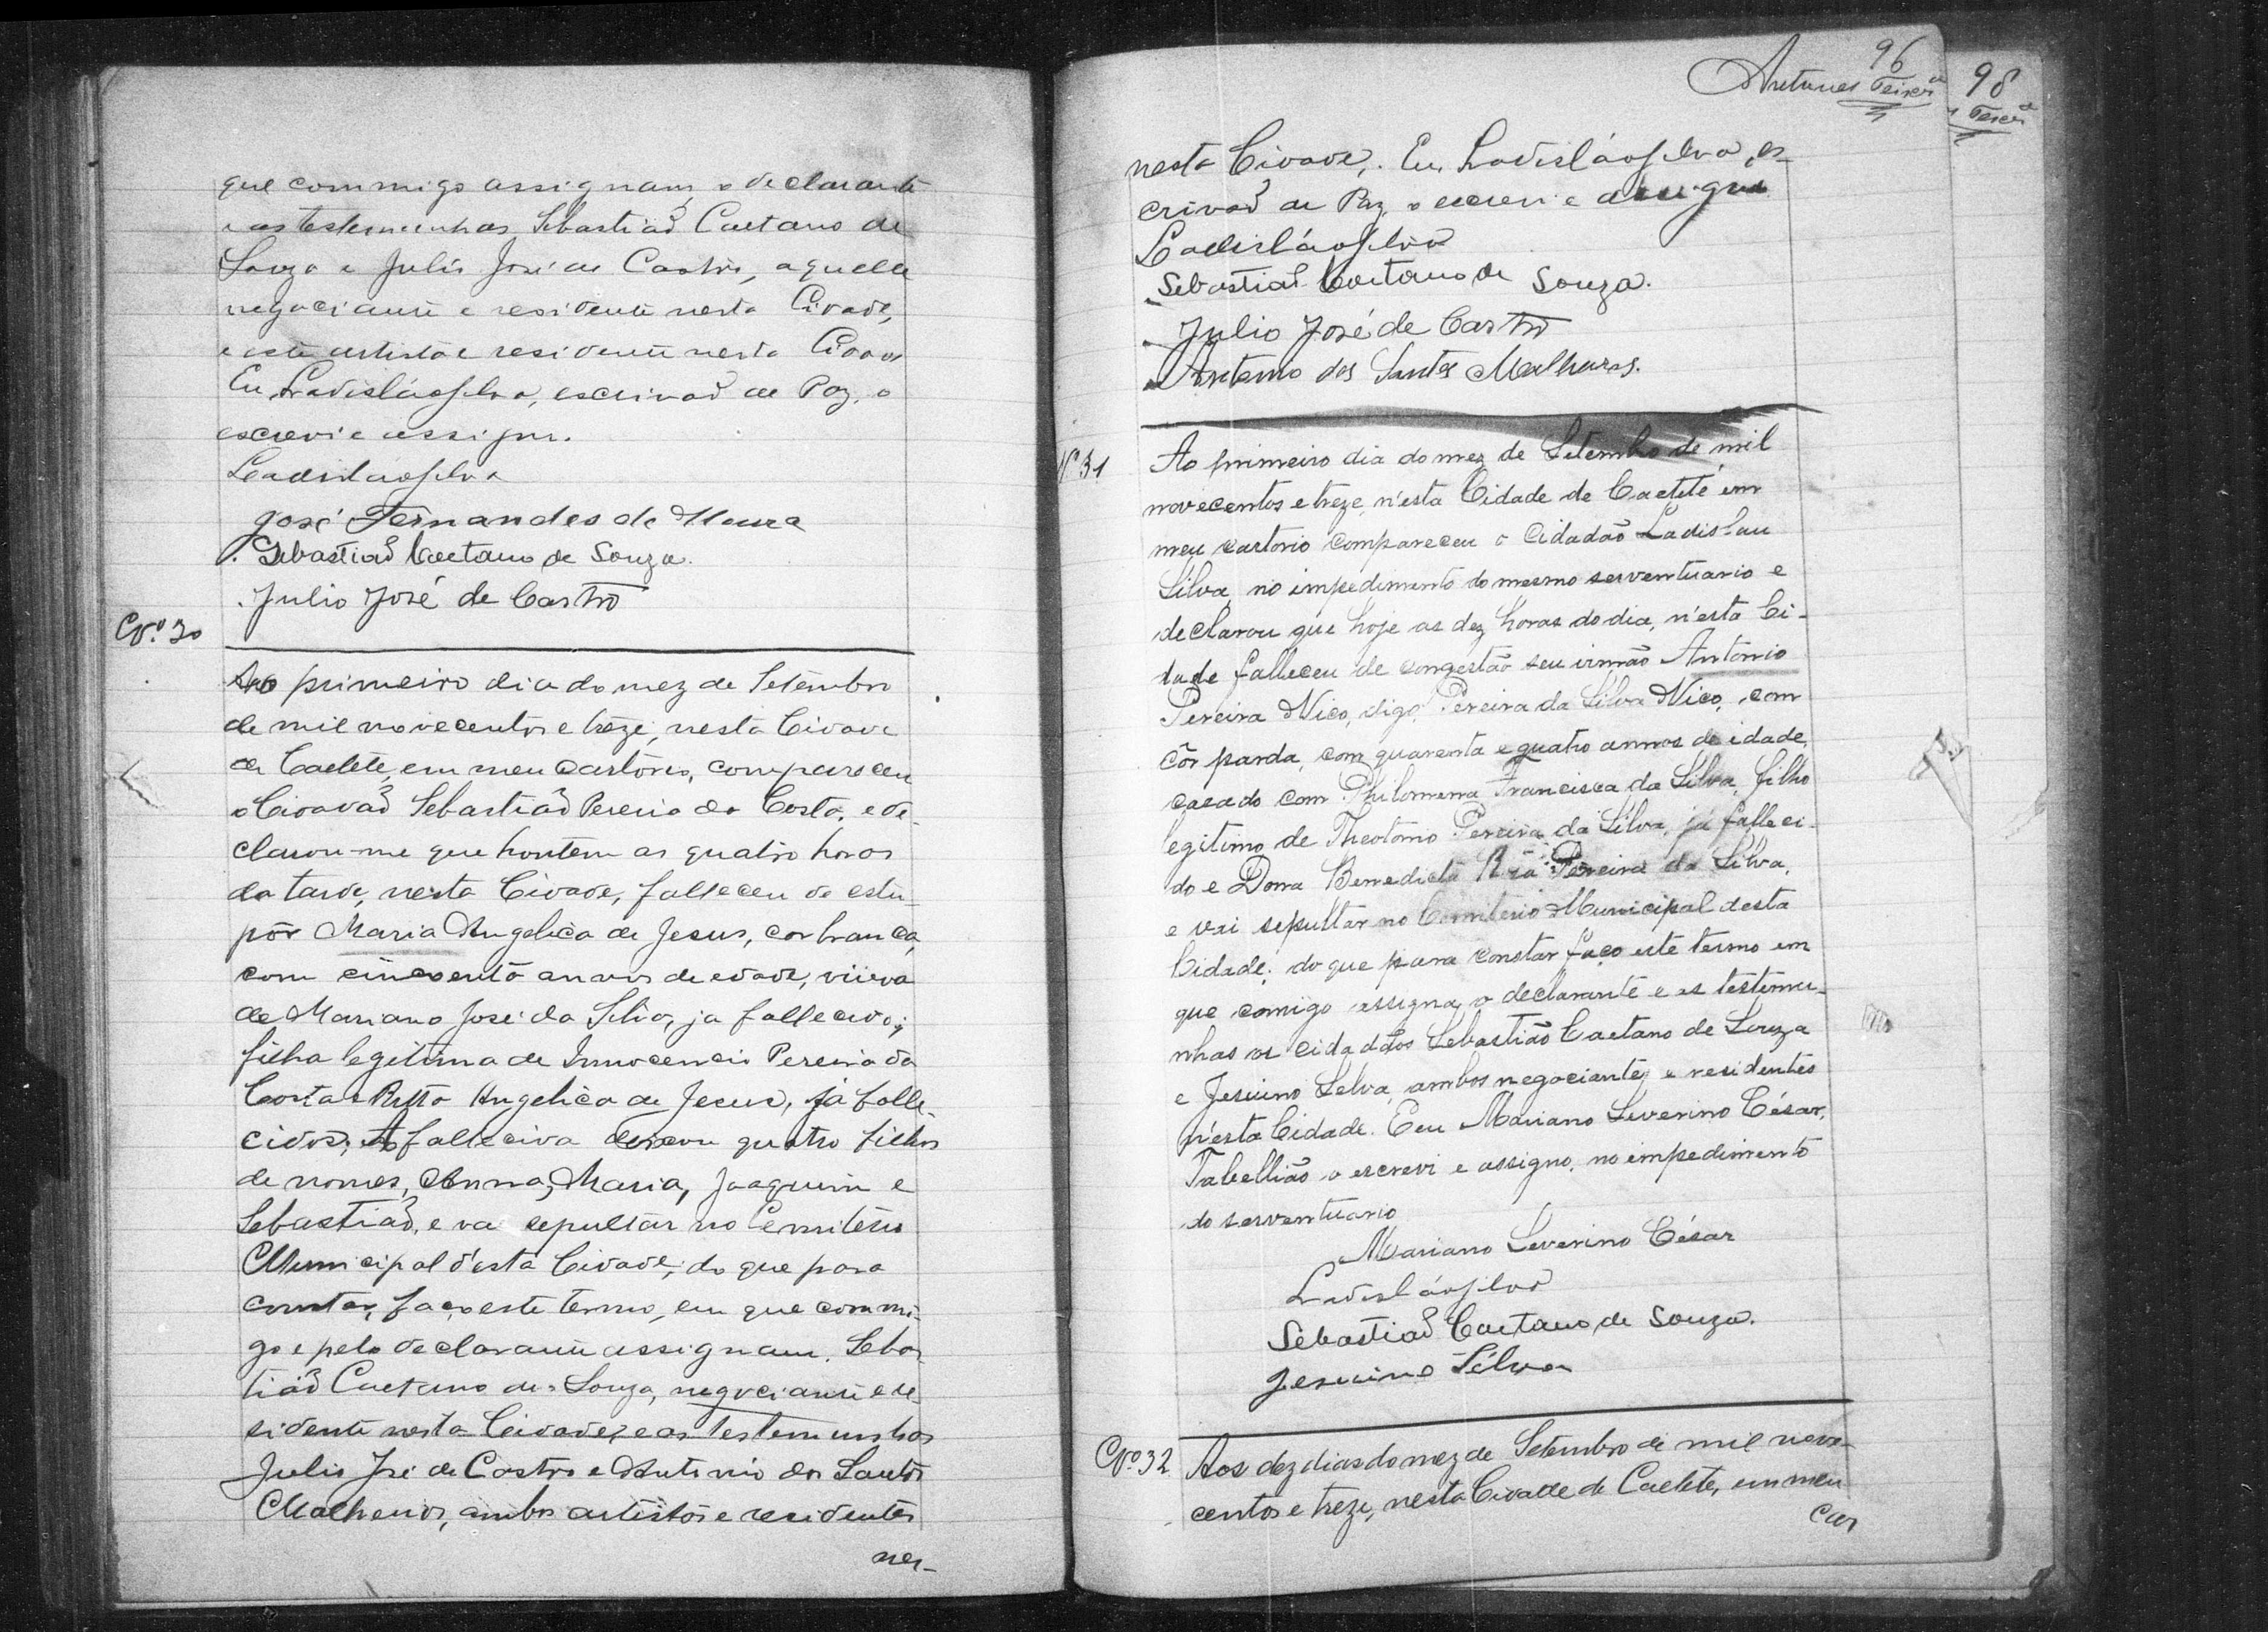 que commigo assignam, o declarante
e as testemunhas Sebastiaõ Caetano de
Souza e Julio José de Castro, aquelle
negociante e residente nesta Cidade,
e este artista e residente nesta Cidade
Eu, Ladisláo Silva, escrivaõ de Paz, o
escrevi e assigno.
Ladisláo Silva
José Fernandes de Moura
Sebastiaõ Caetano de Souza.
Julio José de Castro
Nº. 30
Ao primeiro dia do mez de Setembro
de mil novecentos e treze, nesta Cidade
de Caeteté, em meu Cartorio, compareceu
o Cidadaõ Sebastiaõ Pereira da Costa, e de-
clarou-me que hontem as quatro horas
da tarde, nesta Cidade, falleceu de estu-
pôr Maria Angelica de Jesus, cor branca,
com cincoenta annos de edade, viuva
de Mariano José da Silva, ja fallecido;
filha legitima de Innocencio Pereira da
Costa e Ritta Angelica de Jesus, já falle-
cidos; A fallecida deixou quatro filhos
de nomes, Anna, Maria, Joaquim e
Sebastiaõ, e vai sepultar no Cemiterio
Municipal d'esta Cidade; do que para
constar, faço este termo, em que commi-
go e pelo declarante assignam, Sebas-
tiaõ Caetano de Souza, negociante e re-
sidente nesta Cidade, e as testemunhas
Julio José de Castro e Antonio dos Santos
Malheiros, ambos artistas e residentes
nes-
96
Antunes Teixrª
98
Teixrª
nesta Cidade. Eu, Ladisláo Silva, es-
crivaõ de Paz, o escrevi e assigno
Ladisláo Silva
Sebastiaõ Caetano de Souza.
Julio José de Castro
Antonio dos Santos Malheiros.
Nº 31
Ao primeiro dia do mez de Setembro de mil
novecentos e treze, n'esta Cidade de Caeteté em
meu cartorio compareceu o Cidadão Ladislau
Silva, no impedimento do mesmo serventuario e
declarou que hoje as dez horas do dia, n'esta Ci-
dade falleceu de congestão seu irmão Antonio
Pereira Nico, digo, Pereira da Silva Nico, com
côr parda, com quarenta e quatro annos de idade,
casado com Philomena Francisca da Silva, filho
legitimo de Theotonio Pereira da Silva, já falleci-
do e Dona Benedicta Pereira da Silva,
e vai sepultar no Cemiterio Municipal desta
Cidade; do que para constar faço este termo em
que comigo assigna, o declarante e as testemu-
nhas os cidadãos Sebastião Caetano de Souza
e Jesuino Silva, ambos negociantes e residentes
n'esta Cidade. Eu Mariano Severino César,
Tabellião o escrevi e assigno, no impedimento
do serventuario
Mariano Severino César
Ladisláo Silva
Sebastiaõ Caetano de Souza.
Jesuino Silva
Nº. 32
Aos dez dias do mez de Setembro de mil nove-
centos e treze, nesta Cidade de Caeteté, em meu
car